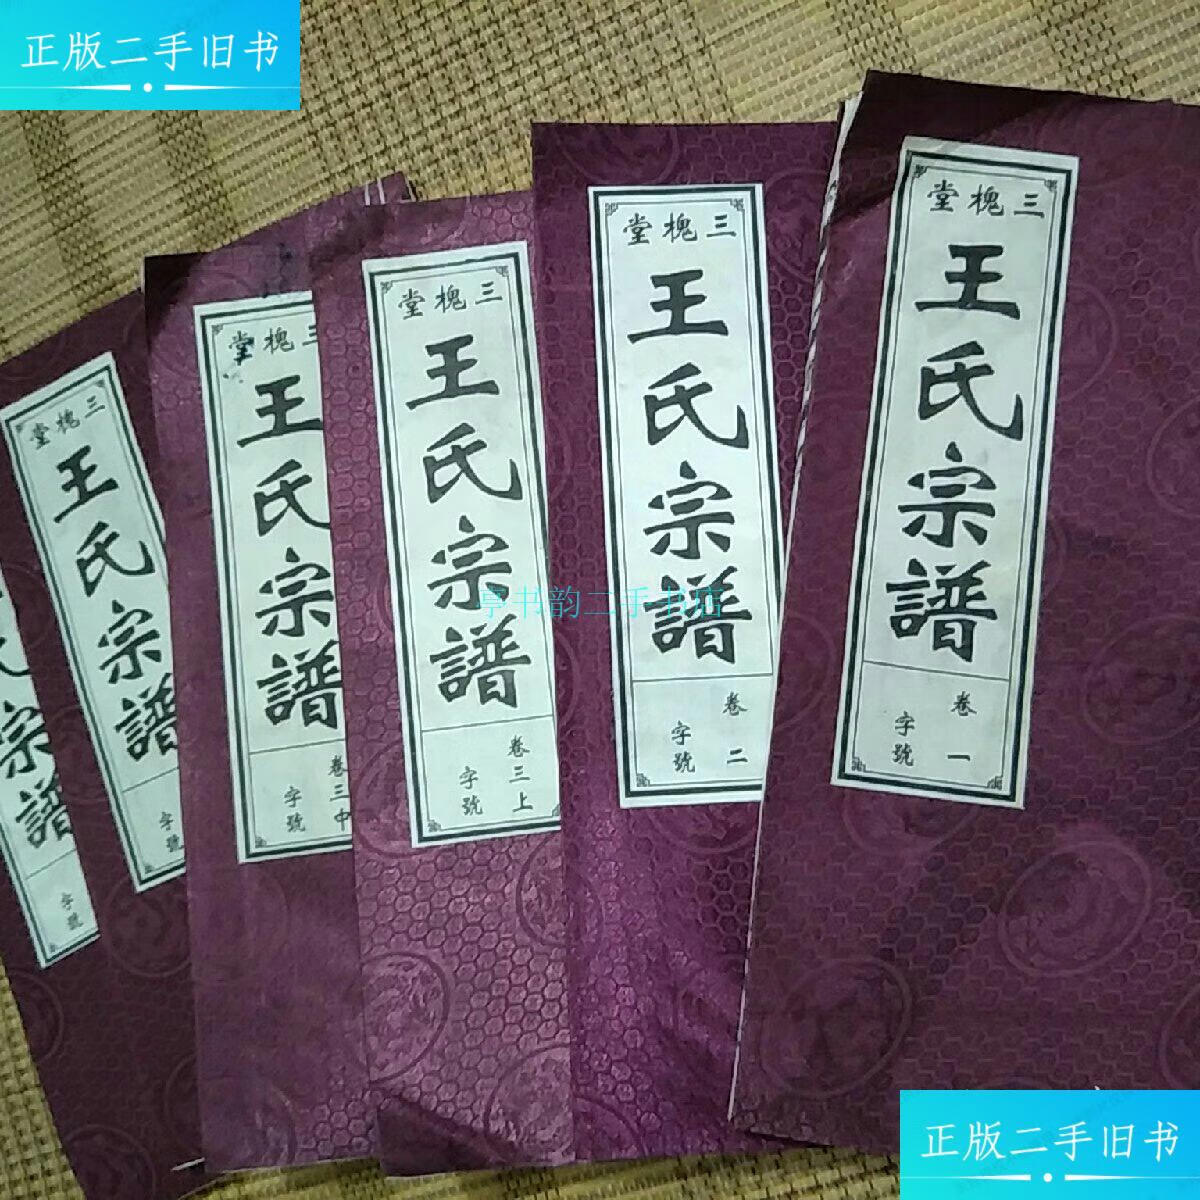 正版二手旧书
三槐堂
王氏宗譜
卷一
字號
三槐堂
王氏宗譜
卷二
字號
三槐堂
王氏宗譜
卷三上
字號
三槐堂
王氏宗譜
卷三中
字號
三槐堂
王氏宗譜
字號
氏宗譜
字號
亨书韵二手书店
正版二手旧书